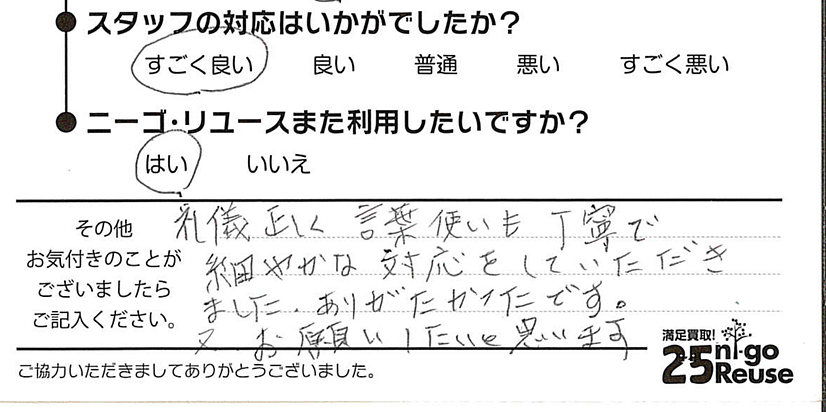 ● スタッフの対応はいかがでしたか?
すごく良い 良い 普通 悪い すごく悪い
● ニーゴ・リユースまた利用したいですか?
はい いいえ
その他
お気付きのことが
ございましたら
ご記入ください。
礼儀正しく 言葉使いも 丁寧で
細やかな 対応をしていただき
ました.ありがたかったです。
又 お願いしたいと思います
満足買取!
25 ni-go
Reuse
ご協力いただきましてありがとうございました。